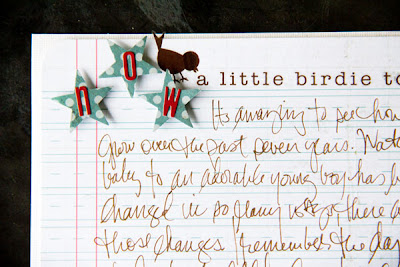 now
a little birdie to
Its amazing to see how
grow over the past seven years. Watc
baby to an adorable young boy has
changed in so many ways, there a
those changes. I remember the day